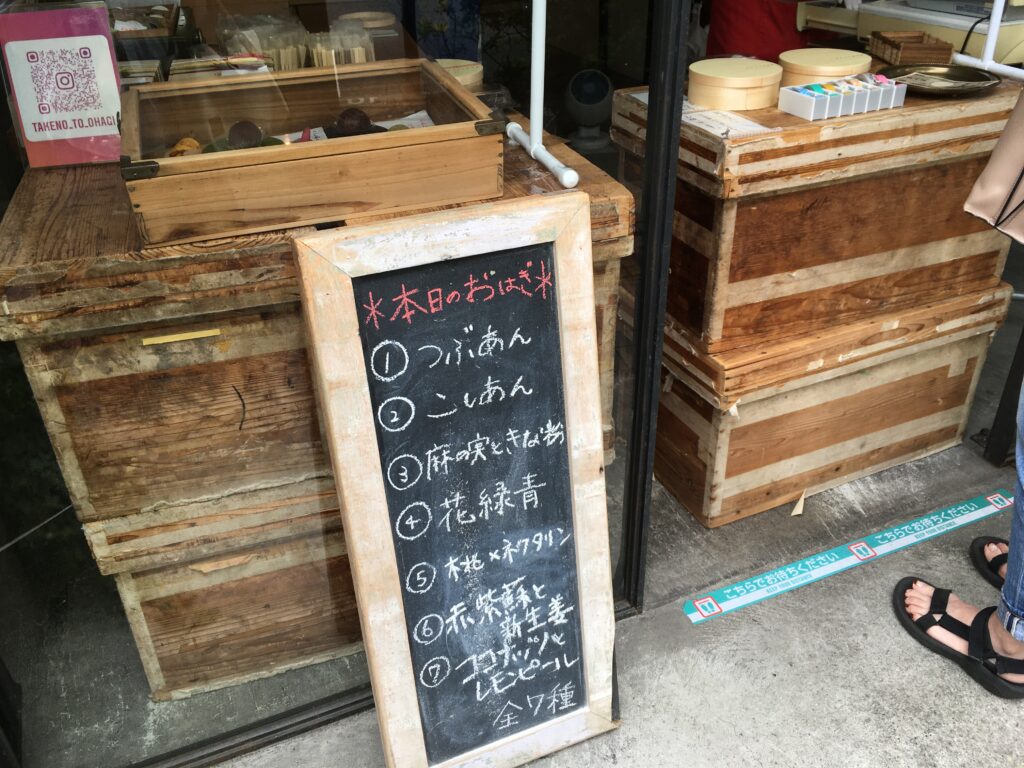 TAKENO_TO_OHAGI
*本日のおはぎ*
① つぶあん
② こしあん
③ 麻の実ときな粉
④ 花緑青
⑤ 桃×ネクタリン
⑥ 赤紫蘇と
新生姜
⑦ ココナッツと
レモンピール
全7種
こちらでお待ちください
KEEP YOUR DISTANCE
こちらでお待ちください
KEEP YOUR DISTANCE